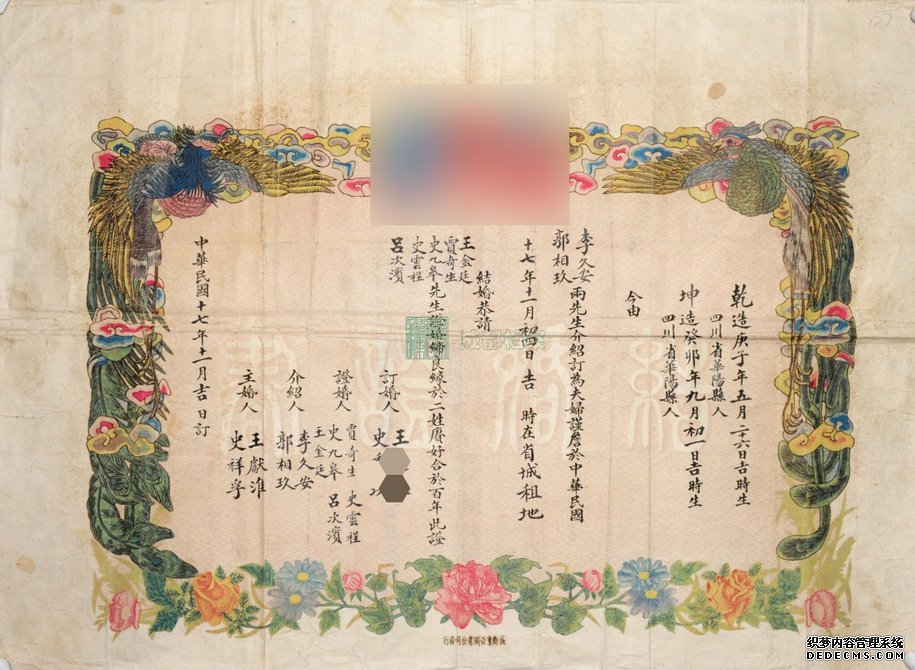 乾造庚子年五月二十六日吉時生
四川省華陽縣人
坤造癸卯年九月初一日吉時生
四川省華陽縣人
今由
李久安
郭相玖
兩先生介紹訂為夫婦謹詹於中華民國
十七年十一月初四日吉 時在省城租地
結婚恭請
王金廷
賈奇生
史九皋
史雲程
呂次濱
先生證婚締良緣於二姓賡好合於百年此證
訂婚人
王
史
證婚人
賈奇生
史九皋
王金廷
史雲程
呂次濱
介紹人
李久安
郭相玖
主婚人
王獻淮
史祥孚
中華民國十七年十一月吉日訂
127
织梦内容管理系统
DEDECMS.COM